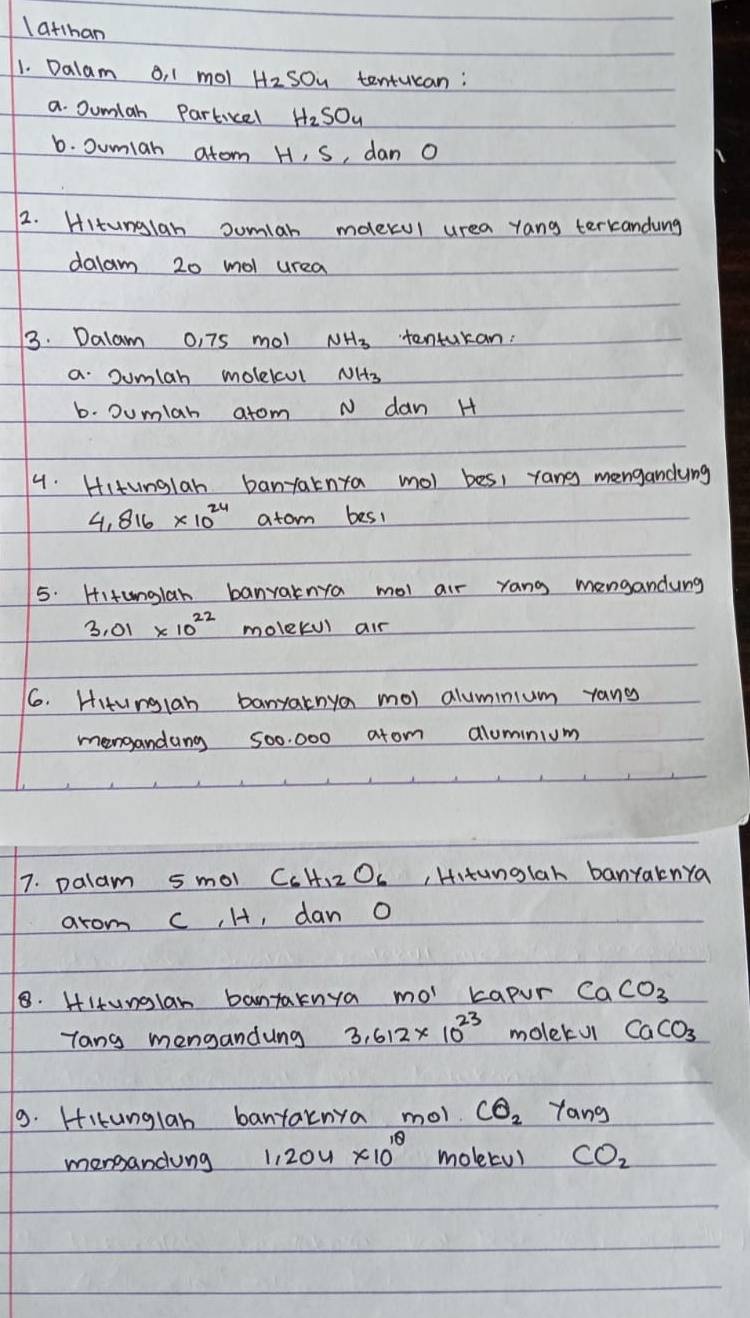 Latihan
1. Dalam 0,1 mol H2SO4 tentukan :
a. Jumlah Partikel H2SO4
b. Jumlah atom H, S, dan O
2. Hitunglah Jumlah molekul urea yang terkandung
dalam 20 mol urea
3. Dalam 0,75 mol NH3 tentukan :
a. Jumlah molekul NH3
b. Jumlah atom N dan H
4. Hitunglah banyaknya mol besi yang mengandung
4,816 × 10^24 atom besi
5. Hitunglah banyaknya mol air yang mengandung
3,01 × 10^22 molekul air
6. Hitunglah banyaknya mol aluminium yang
mengandung 500.000 atom aluminium
7. Dalam 5 mol C6H12O6 , Hitunglah banyaknya
atom C , H, dan O
8. Hitunglah banyaknya mol kapur CaCO3
Yang mengandung 3,612 × 10^23 molekul CaCO3
9. Hitunglah banyaknya mol CO2 Yang
mengandung 1,204 × molekul CO2